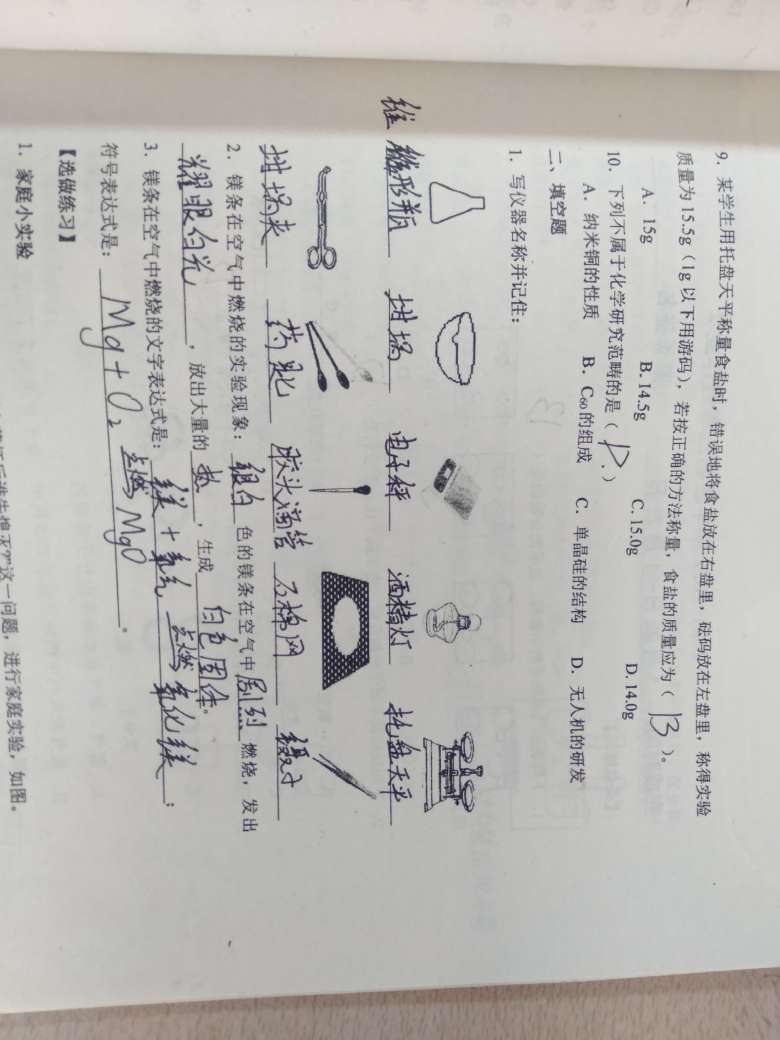 9. 某学生用托盘天平称量食盐时，错误地将食盐放在右盘里，砝码放在左盘里，称得实验
质量为15.5g（1g以下用游码），若按正确的方法称量，食盐的质量应为（ B ）。
A. 15g B. 14.5g C. 15.0g D. 14.0g
10. 下列不属于化学研究范畴的是（ D. ）
A. 纳米铜的性质 B. C₆₀的组成 C. 单晶硅的结构 D. 无人机的研发
二、填空题
1. 写仪器名称并记住：
锥 锥形瓶 坩埚 电子秤 酒精灯 托盘天平
坩埚夹 药匙 胶头滴管 石棉网 镊子
2. 镁条在空气中燃烧的实验现象：银白色的镁条在空气中剧烈燃烧，发出
耀眼白光，放出大量的热，生成白色固体。
3. 镁条在空气中燃烧的文字表达式是：镁 + 氧气 点燃 氧化镁；
符号表达式是：Mg + O₂ 点燃 MgO。
【选做练习】
1. 家庭小实验
这一问题，进行家庭实验，如图。